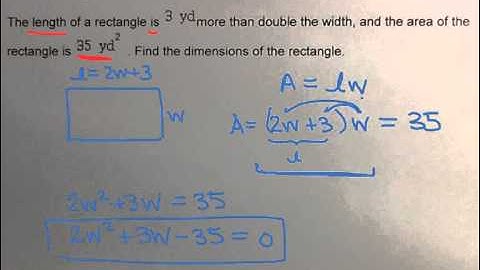 The length of a rectangle is 3 yd more than double the width, and the area of the
rectangle is 35 yd². Find the dimensions of the rectangle.
l = 2w+3
A = lw
w
A = (2w+3)w = 35
l
2w² + 3w = 35
2w² + 3w - 35 = 0